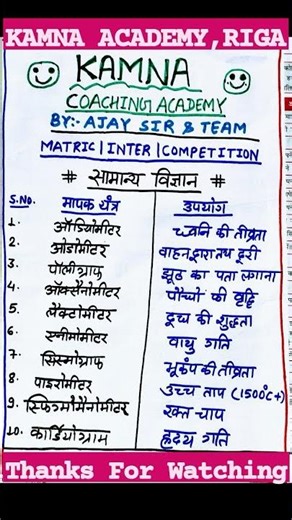 KAMNA ACADEMY,RIGA
KAMNA
COACHING ACADEMY
BY:- AJAY SIR & TEAM
MATRIC | INTER | COMPETITION
# सामान्य विज्ञान #
S.No. मापक यंत्र उपयोग
1. ऑडियोमीटर ध्वनि की तीव्रता
2. ओडोमीटर वाहन द्वारा तय दूरी
3. पॉलीग्राफ झूठ का पता लगाना
4. ऑक्सैनोमीटर पौधों की वृद्धि
5. लैक्टोमीटर दूध की शुद्धता
6. एनीमोमीटर वायु गति
7. सिस्मोग्राफ भूकंप की तीव्रता
8. पाइरोमीटर उच्च ताप (1500°C+)
9. स्फिग्मोमैनोमीटर रक्त चाप
10. कार्डियोग्राम हृदय गति
Thanks For Watching